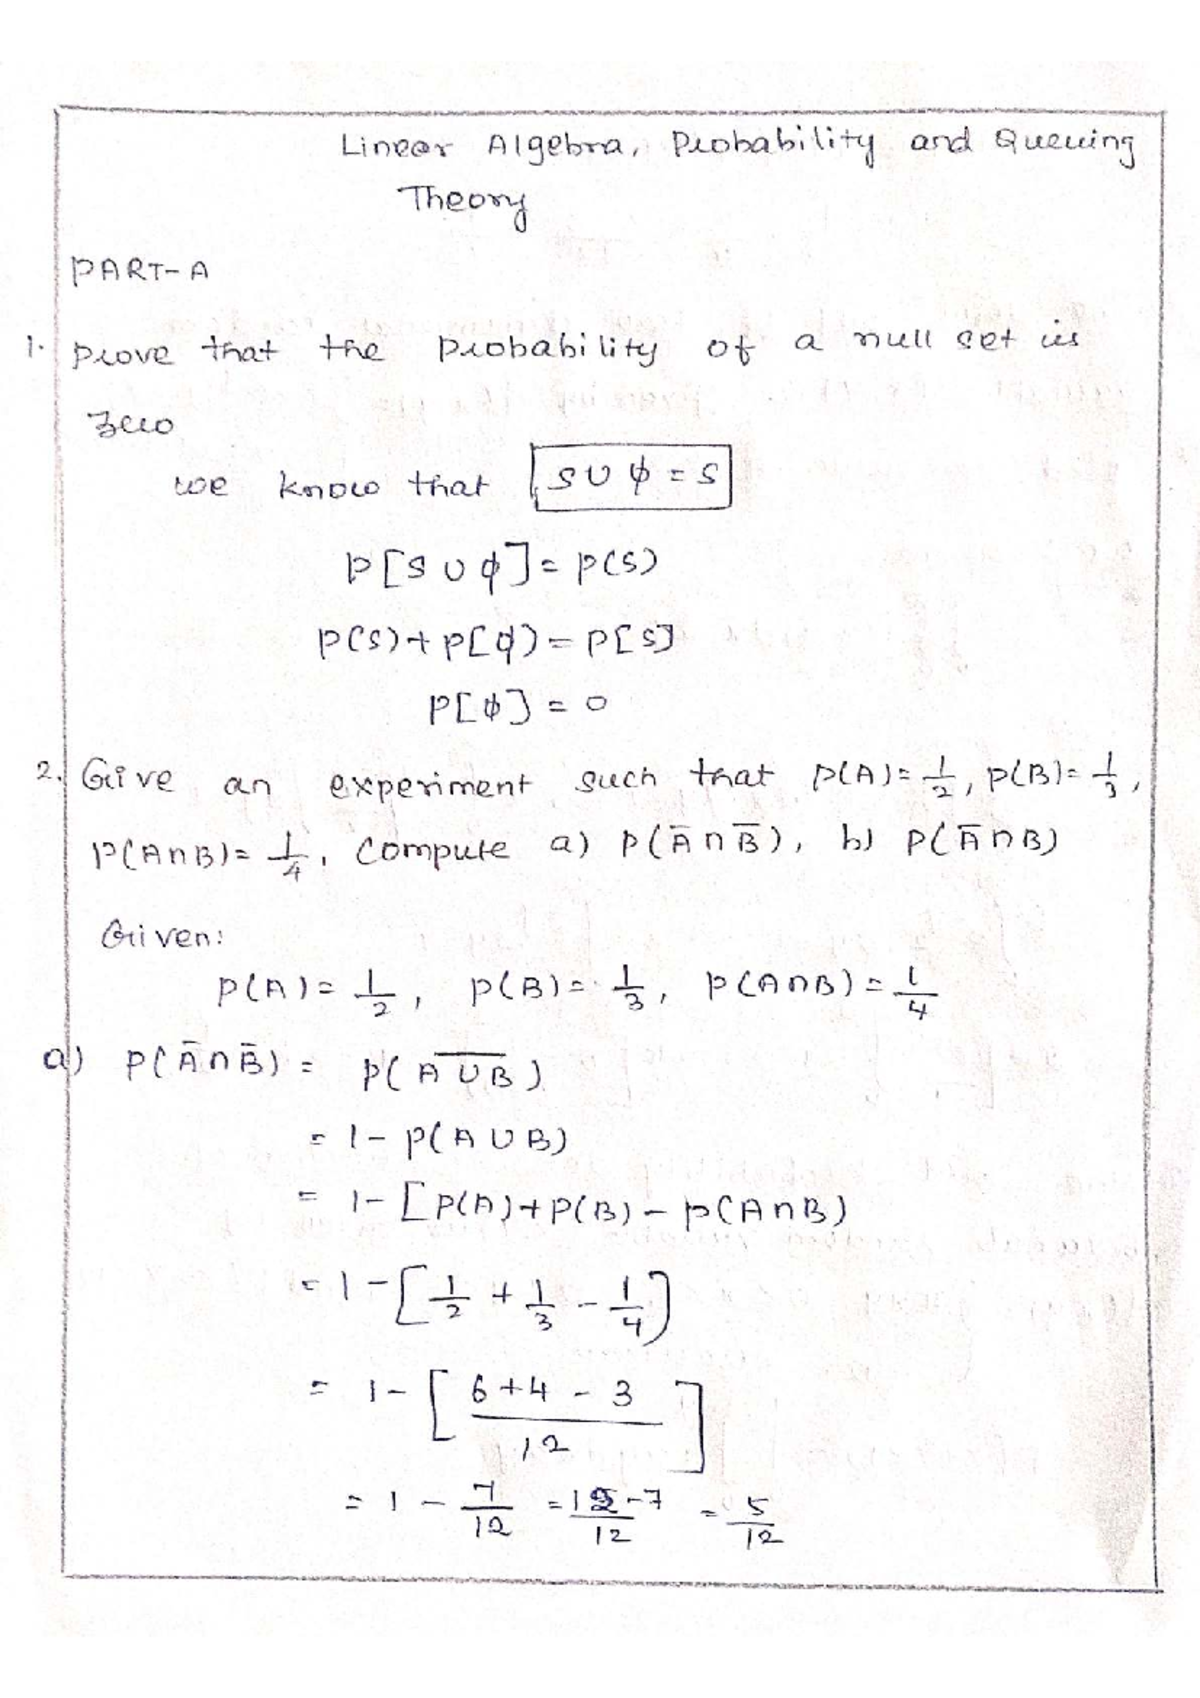 Linear Algebra, Probability and Queuing
Theory
PART-A
1. Prove that the probability of a null set is
zero
we know that S∪ϕ=S
P[S∪ϕ]=P(S)
P(S)+P[ϕ)=P[S]
P[ϕ]=0
2. Give an experiment such that P(A)=1/2, P(B)=1/3,
P(A∩B)=1/4, compute a) P(A̅∩B̅), b) P(A̅∩B)
Given:
P(A)=1/2, P(B)=1/3, P(A∩B)=1/4
a) P(A̅∩B̅) = P(A̅ ̅∪̅ ̅B̅)
= 1-P(A∪B)
= 1-[P(A)+P(B)-P(A∩B)
= 1-[1/2 + 1/3 - 1/4]
= 1-[6+4-3/12]
= 1 - 7/12 = 12-7/12 = 5/12